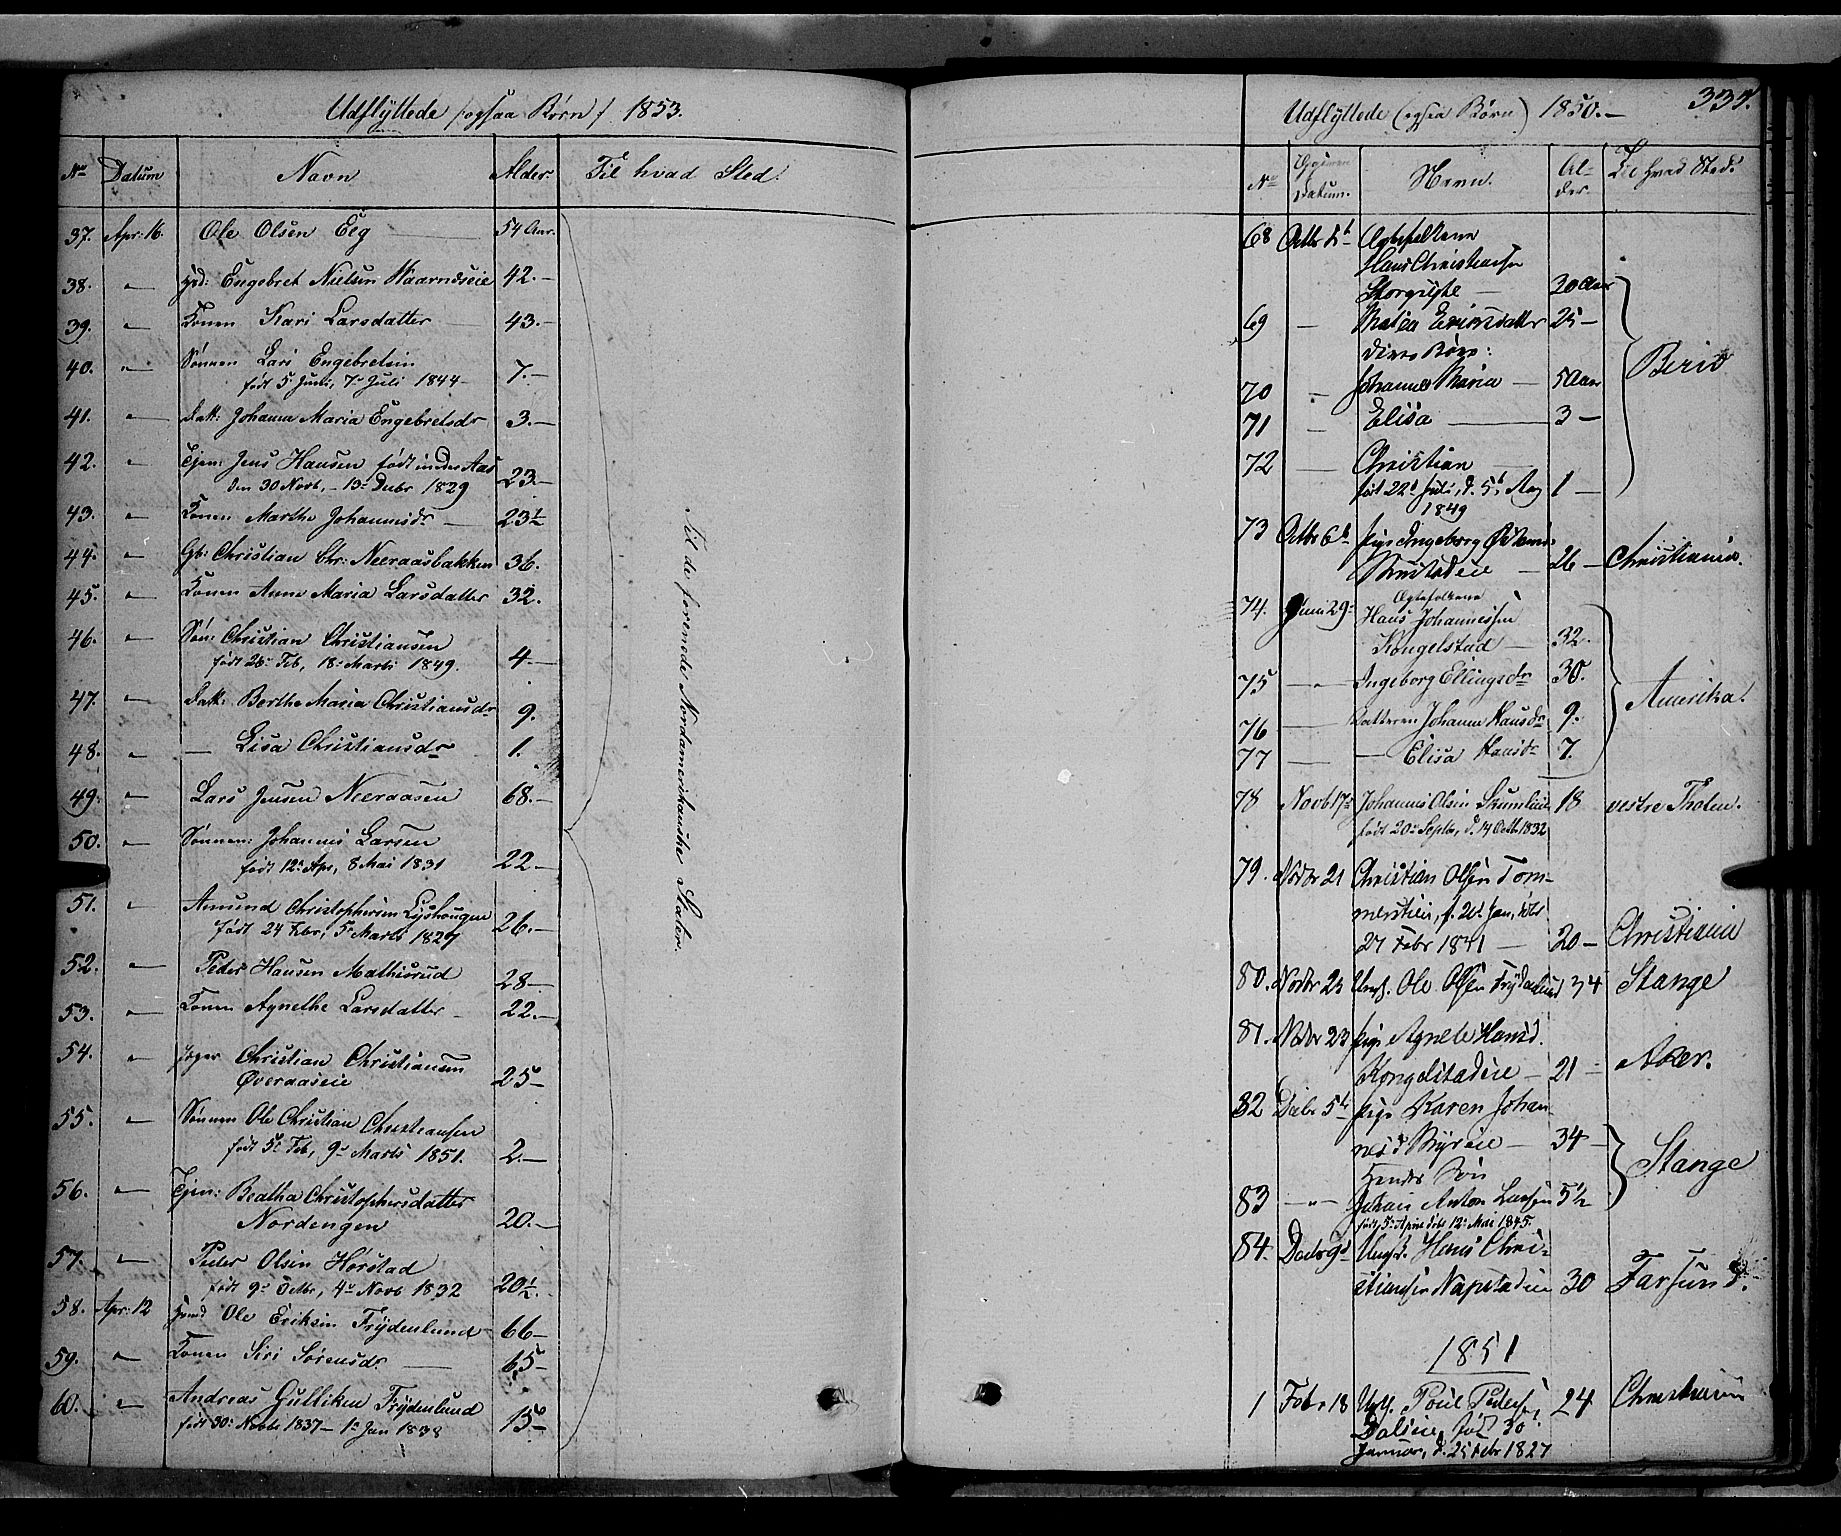 Udflyttede (ogsaa Børn) 1853.
No Datum Navn Alder Til hvad Sted.
37. Apr: 16. Ole Olsen Eeg 54 Aar.
38. " Hsd: Engebret Nielsen 42.-
39. " Konen Kari Larsdatter 43.-
40. " Sønnen Lars Engebretsen
født 5 Juni, 7de Juli 1844 - 7.-
41. " Datt: Johanna Maria Engebretsdr 3.-
42. " Tjen: Jens Hansen født under Aas
den 30 Novb, - 13de Decbr 1829 23.-
43. " Konen Marthe Johannisdr 23½
44. " Gb: Christian Chr: Neeraasbakken 36.
45. " Konen Anne Maria Larsdatter 32.
46. " Søn: Christian Christiansen
født 28de Feb, 18de Marts 1849. 4
47. " Datt: Berthe Maria Christiansdr 9.
48. " Lisa Christiansdr 1.
49. " Lars Jensen Neeraasen 68.-
50. " Sønnen: Johannis Larsen
født 12te Apr, 8 Mai 1831 22.-
51. " Amund Christophersen Lyshougen
født 24 Febr, 5te Marts 1827 26.-
52. " Peder Hansen Mathisrud 28.-
53. " Konen Agnethe Larsdatter 22.-
54. " Christian Christiansen
Øveraaseie 25-
55. " Sønnen Ole Christian Christiansen
født 5te Feb, 9de Marts 1851. 2.-
56. " Tjen: Beatha Christophersdatter
Nordengen 20.-
57. " Peder Olsen Hørstad
født 9de Octbr, 4de Novb 1832 20½
58. Apr: 12 Ole Eriksen Frydenlund 66-
59. " Konen Siri Sørensdr. 65-
60. " Andreas Gulliksen Frydenlund
født 30te Novb 1837 - 1ste Jan 1838 15-
Til de forenede Nordamerikanske Stater
Udflyttede (ogsaa Børn) 1850.- 335.
No Datum. Navn. Alder. Til hvad Sted.
68 Octbr Ægtefolkene
Hans Christiansen
30 Aar
69 - Mathea Ericsdatter 25 -
deres Børn:
70 - Johanne Maria - 5 Aar Berid
71 - Elisa 3 -
72 - Christian
født 22de Juli, d. 5te Aug 1 -
1849
73 Octbr 6te pige Ingeborg
26 - Christiania.
74. Juni 29de Ægtefolkene
Hans Johannessen
Kongelstad - 32.
75 " Ingeborg Ellingsdr 30. Amerika.
76 - Datteren Johanne Hansdr 9.
77 - Elisa Hansdr 7.
78 Novb 17de Johannes Olsen 18 vestre Thoten.
født 20de Septbr, d. 14 Octbr 1832
79. Novbr 21 Christian Olsen Tom-
f. Jan, døbt
27 Febr 1841 - 20 - Christiania
80. Novbr 23 Ungk. Ole Olsen Frydenlund 34 Stange
81. Novbr 23 pige Agnete Hansd.
Kongelstadeie - 21 - Aker.
82 Decbr 5te pige Karen Johan-
nesd Byreie - 34 - Stange
Hendes Søn
83 " Johan Anton Larsen 5½
født 5te April døbt 12te Mai 1845.
84. Decbr 9de Ungk. Hans Chri-
stiansen Napstadeie 30 Farsund.
1851
1 Febr 18 Ungk. Poul Pedersen 24 Christiania
Dalseie, født 30
Januar, d. 25 Febr 1827